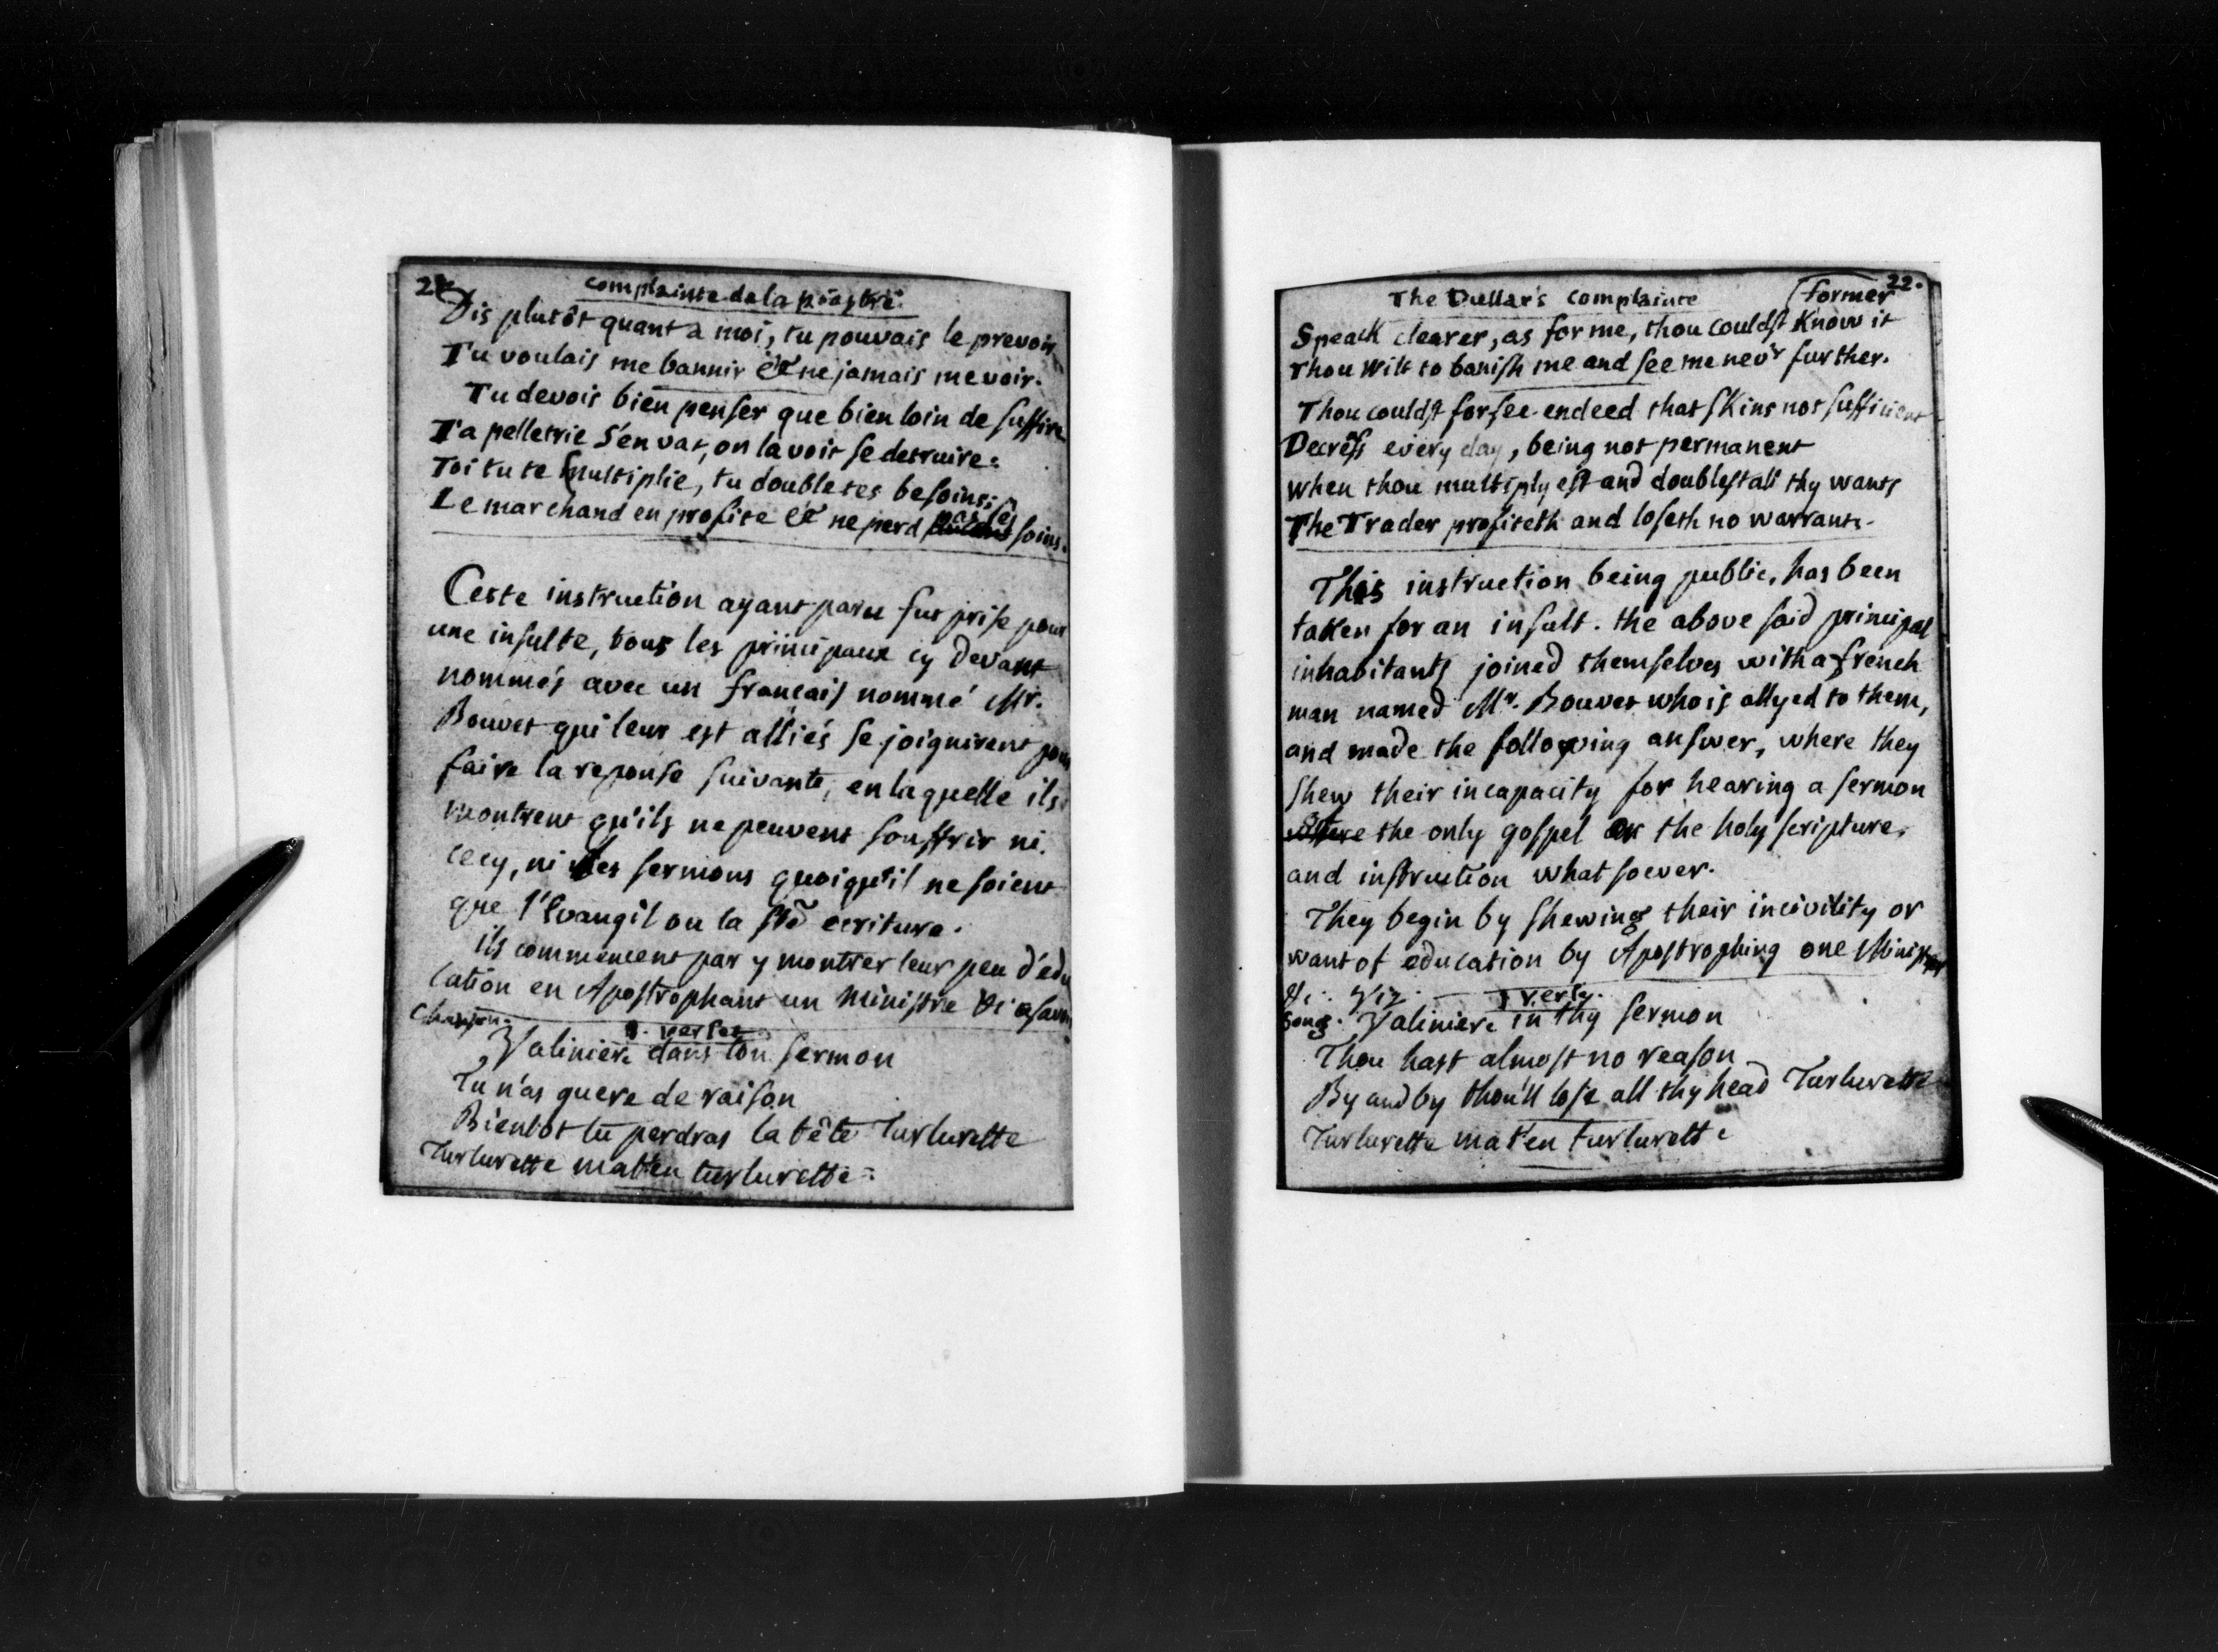 complainte de la piastre
Dis plutôt quant a moi, tu pouvais le prevoir
Tu voulais me bannir et ne jamais me voir.
Tu devois bien penser que bien loin de suffire
Ta pelletrie s'en vat, on la voit se detruire:
Toi tu te multiplie, tu double tes besoins;
Le marchand en profite et ne perd pas ses soins.
Cette instruction ayant paru fut prise pour
une insulte, tous les principaux cy devant
nommés avec un français nommé Mr.
Bouvet qui leur est alliés se joignirent pour
faire la reponse suivante, en laquelle ils
montrent qu'ils ne peuvent souffrir ni
cecy, ni les sermons quoiqu'il ne soient
que l'Evangil ou la ste ecriture.
ils commencent par y montrer leur peu d'edu
cation en Apostrophant un Ministre
Chanson.
1. verset
Valiniere dans ton sermon
Tu n'as guere de raison
Bientot tu perdras la tête Turlurette
Turlurette mat'en turlurette.
22.
The Dullar's complainte (former
Speack clearer, as for me, thou couldst Know it
Thou Wilt to banish me and see me nev'r further.
Thou couldst forsee endeed that skins not sufficient
Decress every day, being not permanent
when thou multiplyest and doublest all thy wants
The Trader profiteth and loseth no warrants.
This instruction being public, has been
taken for an insult. the above said principal
inhabitants joined themselves with a french
man named Mr. Bouvet who is allyed to them,
and made the following answer, where they
shew their incapacity for hearing a sermon
the only gospel or the holy scripture,
and instruction what soever.
They begin by shewing their incivility or
want of education by Apostrophing one Minister
Viz. 1 verse.
Song. Valiniere in thy sermon
Thou hast almost no reason
By and by thou'll lose all thy head Turlurette
Turlurette mat'en turlurette